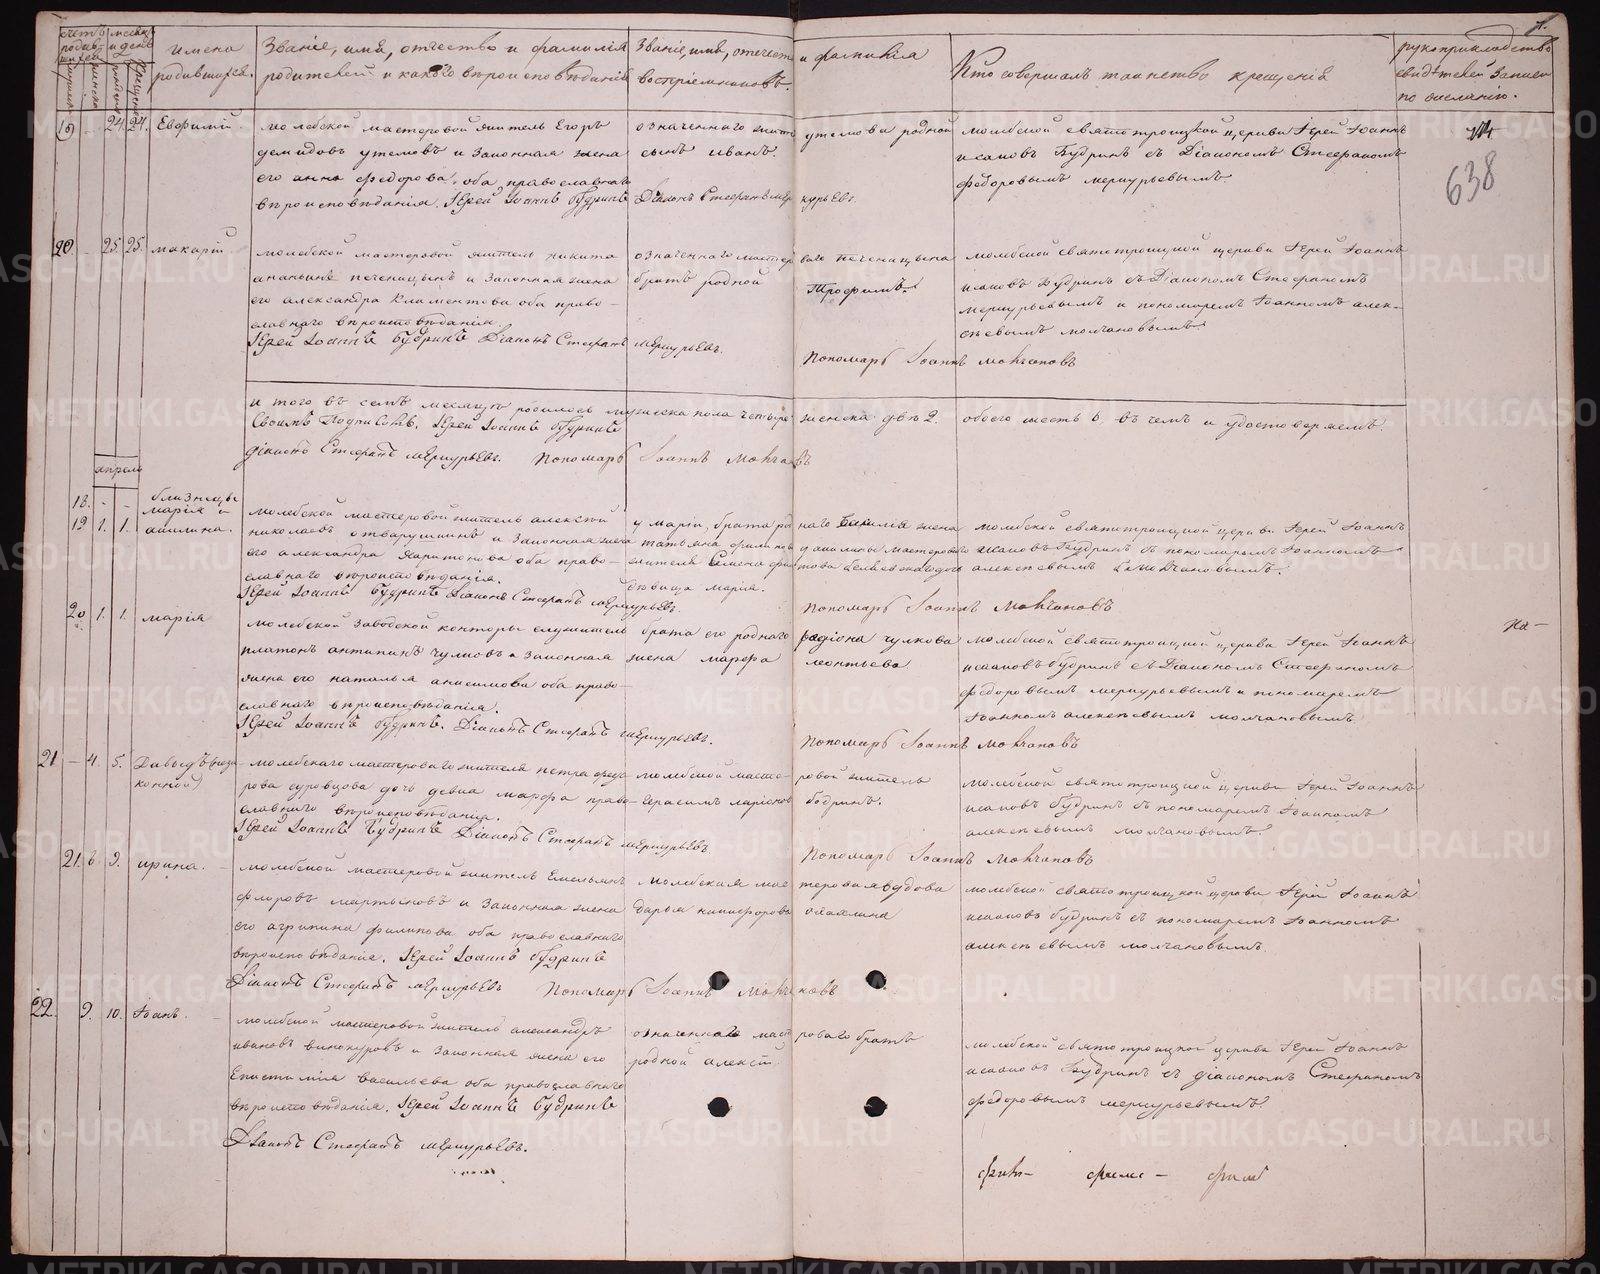 счетъ родившихся
месяцъ и день
имена родившихся.
Званіе, имя, отчество и фамилія
родителей и какого вѣроисповѣданія
Званіе, имя, отчество и фамилія
воспріемниковъ.
Кто совершалъ таинство крещенія
рукоприкладство
свидѣтелей записи
по желанію.
638
19 24. 24. Евфимій.
молебской мастеровой житель Егоръ
демидовъ утемовъ и законная жена
его анна федорова. оба православнаго
вѣроисповѣданія. Іерей Іоаннъ Будринъ
Діаконъ Стефанъ меркурьевъ.
означеннаго жит утемова родной
сынъ иванъ.
молебской святотроицкой церкви Іерей Іоаннъ
исаковъ Будринъ съ Діакономъ Стефаномъ
федоровымъ меркурьевымъ.
20. 25. 25. макарій
молебской мастеровой житель никита
ананьинъ печеницынъ и законная жена
его александра климентова оба право-
славнаго вѣроисповѣданія.
Іерей Іоаннъ Будринъ Діаконъ Стефанъ меркурьевъ.
означеннаго мастероваго печеницына
братъ родной Трофимъ.
молебской святотроицкой церкви Іерей Іоаннъ
исаковъ Будринъ съ Діакономъ Стефаномъ
меркурьевымъ и пономаремъ Іоанномъ алек-
сѣевымъ молчановымъ
Пономарь Іоаннъ Молчановъ
и того въ семъ месяцѣ родилось мужеска пола четыре женска двѣ 2. обоего шесть 6 въ чемъ и удостоверяемъ.
Своимъ Подписомъ. Іерей Іоаннъ Будринъ
діаконъ Стефанъ меркурьевъ. Пономарь Іоаннъ Молчановъ
апрель
18. близнецы
марія и
19 1. 1. акилина.
молебской мастеровой житель алексѣй
николаевъ отварушинъ и законная жена
его александра харитонова оба право-
славнаго вѣроисповѣданія.
Іерей Іоаннъ Будринъ Діаконъ Стефанъ меркурьевъ.
у маріи, брата роднаго жена
татьяна филипова у акилины мастероваго
жителя
девица марія.
молебской святотроицкой церкви Іерей Іоаннъ
исаковъ Будринъ съ пономаремъ Іоанномъ
алексѣевымъ молчановымъ.
Пономарь Іоаннъ Молчановъ
20 1. 1. марія
молебской заводской конторы служитель
платонъ антипинъ чулковъ и законная
жена его наталья анисимова оба право-
славнаго вѣроисповѣданія.
Іерей Іоаннъ Будринъ. Діаконъ Стефанъ меркурьевъ.
брата его роднаго родіона чулкова
жена марфа леонтьева
молебской святотроицкой церкви Іерей Іоаннъ
исаковъ Будринъ съ Діакономъ Стефаномъ
федоровымъ меркурьевымъ и пономаремъ
Іоанномъ алексѣевымъ молчановымъ
Пономарь Іоаннъ Молчановъ
21 – 4. 5. Давыдъ (неза-
конной)
молебскаго мастероваго жителя петра федо-
рова суровцова дочь девка марфа право-
славнаго вѣроисповѣданія.
Іерей Іоаннъ Будринъ Діаконъ Стефанъ меркурьевъ.
молебской мастеровой житель
Герасимъ ларіоновъ бодринъ.
молебской святотроицкой церкви Іерей Іоаннъ
исаковъ Будринъ съ пономаремъ Іоанномъ
алексѣевымъ молчановымъ.
Пономарь Іоаннъ Молчановъ
21. 6. 9. ирина.
молебской мастеровой житель Емельянъ
флоровъ мартыновъ и законная жена
его агрипина филипова оба православнаго
вѣроисповѣданія. Іерей Іоаннъ Будринъ
Діаконъ Стефанъ меркурьевъ Пономарь Іоаннъ Молчановъ
молебская мастеровая вдова
дарья никифорова
молебской святотроицкой церкви Іерей Іоаннъ
исаковъ Будринъ съ пономаремъ Іоанномъ
алексѣевымъ молчановымъ
22. 9. 10. Іоанъ.
молебской мастеровой житель александръ
ивановъ винокуровъ и законная жена его
Епистимія васильева оба православнаго
вѣроисповѣданія. Іерей Іоаннъ Будринъ
Діаконъ Стефанъ меркурьевъ.
означеннаго мастероваго братъ
родной алексѣй
молебской святотроицкой церкви Іерей Іоаннъ
исаковъ Будринъ съ діакономъ Стефаномъ
федоровымъ меркурьевымъ.
METRIKI.GASO-URAL.RU